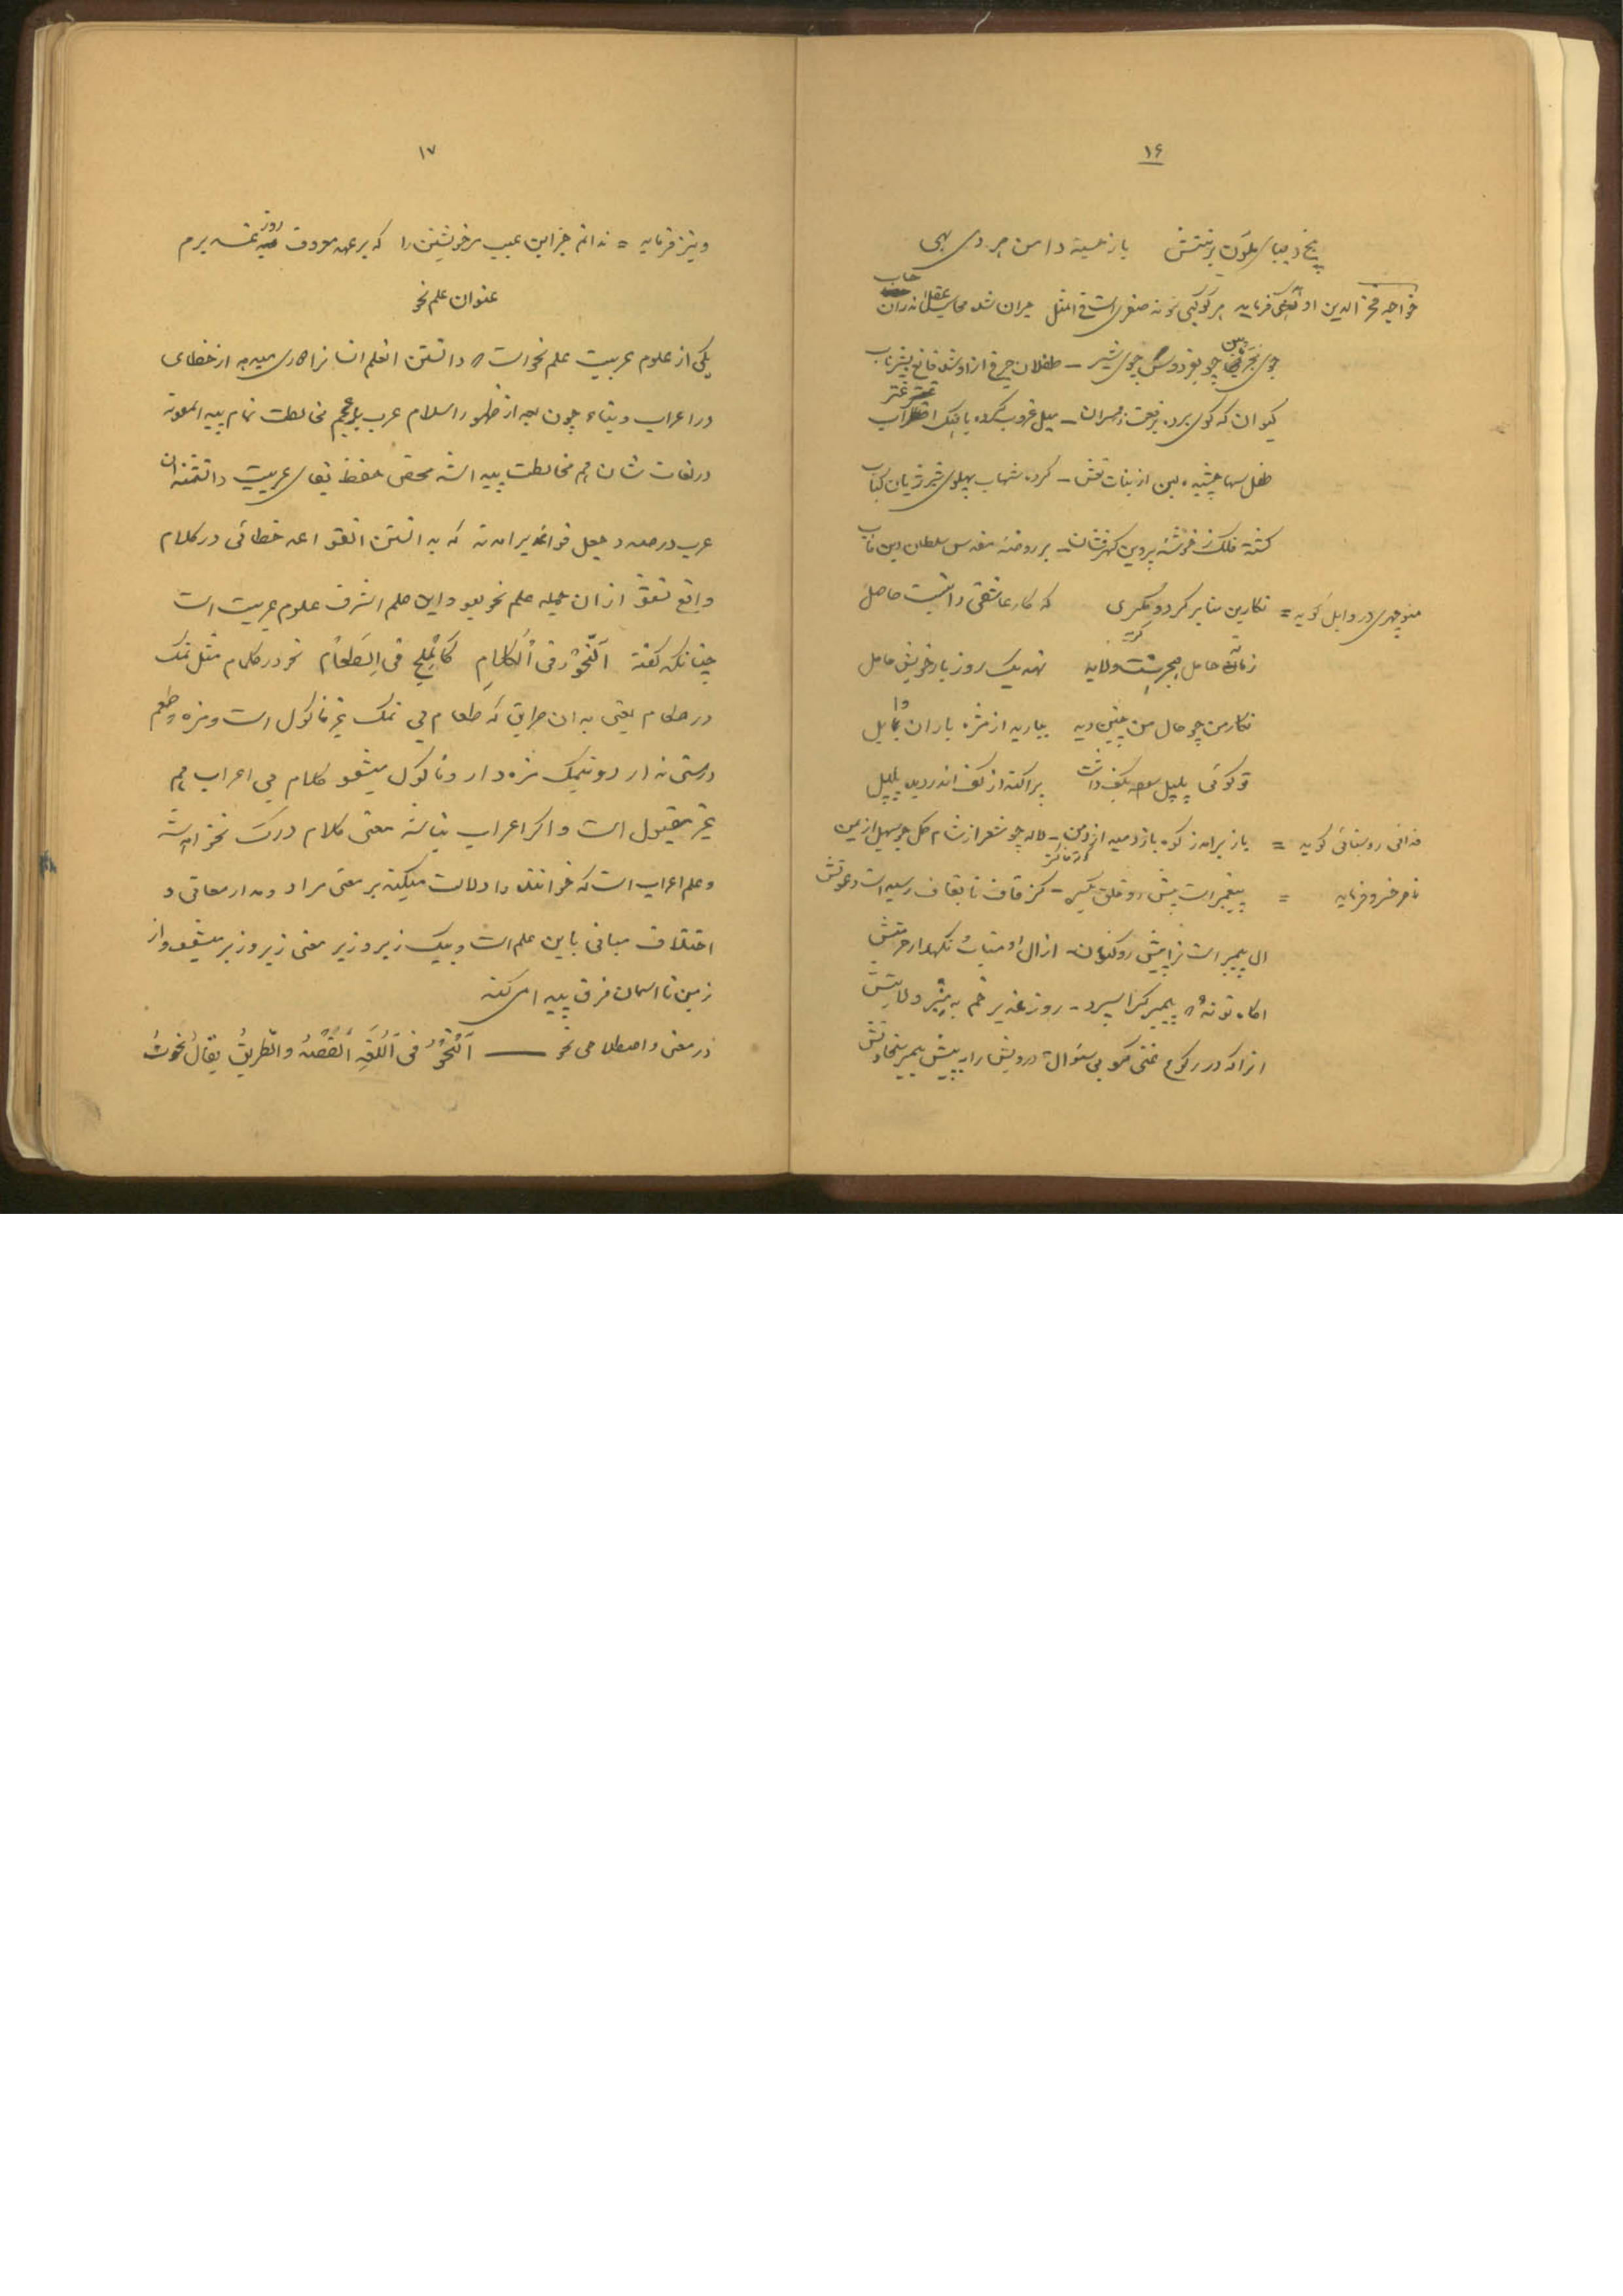 ۱۶
پنج دیبای ملون برتنش بازجسته دامن هر دی بهی
خواجه فخرالدین فرماید هر کوکبی نمونه صفری است فی المثل حیران شده محاسب عقل اندران حساب
جوی مجره بین چو بفردوس جوی شیر – طفلان چرخ ازو شده قانع بشیر ناب
کیوان که گوی برده برفعت ز همسران – میل غروب کرده
طفل سها چشیده لبن از بنات نعش – کرده شهاب پهلوی شیر ژیان کباب
گشته فلک ز خوشه پروین گهرفشان – بر روضه مقدس سلطان دین مآب
منوچهری در وابل گوید = نگارین منا برگرد و مگری که کار عاشقی را نیست حاصل
زمانه حامل هجر است ولابد نهد یک روز بار خویش حامل
نگار من چو حال من چنین دید ببارید از مژه باران وابل
تو گوئی پلپل سوده بکف داشت پراکند از کف اندر دیده پلپل
فدائی گوید = باز برامد ز کوه باز دمید از دمن – لاله چو شعر از شام گل چو سهیل از یمن
ناصر خسرو فرماید = پیغمبر است پیش رو خلق یکسره – کز قاف تا بقاف رسید است دعوتش
ال پیمبر است ترا پیش رو کنون – از ال او متاب و نگهدار حرمتش
اگاه نه پیمبر کرا سپرد – روز غدیر خم به منبر ولایتش
انرا که در رکوع غنی کرد بی سئوال درویش را به پیش پیمبر سخاوتش
۱۷
ونیز فرماید = ندانم جز این عیب مر خویشتن را که بر عهد معروف روز غدیرم
عنوان علم نحو
یکی از علوم عربیت علم نحو است که دانستن انعلم انسانرا یاری میدهد از خطای
در اعراب و بناء چون بعد از ظهور اسلام عرب با عجم مخالطت تمام پیدا نمودند
در لغات شان هم مخالطت پیدا شد محض حفظ بقای عربیت دانشمندان
عرب در صدد جعل قواعد برامدند که بدانستن انقواعد خطائی در کلام
واقع نشود از ان جمله علم نحو بود و این علم اشرف علوم عربیت است
چنانکه گفته اَلنَّحْوُ فی اَلْکَلامِ کَالْمِلْحِ فی الطَّعامِ نحو در کلام مثل نمک
در طعام یعنی بدان طریق که طعام بی نمک غیر ماکول است و مزه و طعم
درستی ندارد و بنمک مزه دار و ماکول میشود کلام بی اعراب هم
غیر مقبول است و اگر اعراب نباشد معنی کلام درک نخواهد شد
و علم اعراب است که خواننده را دلالت میکند بر معنی مراد و مدار معانی و
اختلاف مبانی باین علم است و بیک زیر و زبر معنی زیر و زبر میشود و از
زمین تا اسمان فرق پیدا می کند
در معنی و اصطلاحی نحو — اَلنَّحْوُ فی اَللُّغَةِ اَلْقَصْدُ والطَّریقُ یقالُ نَحَوْتُ